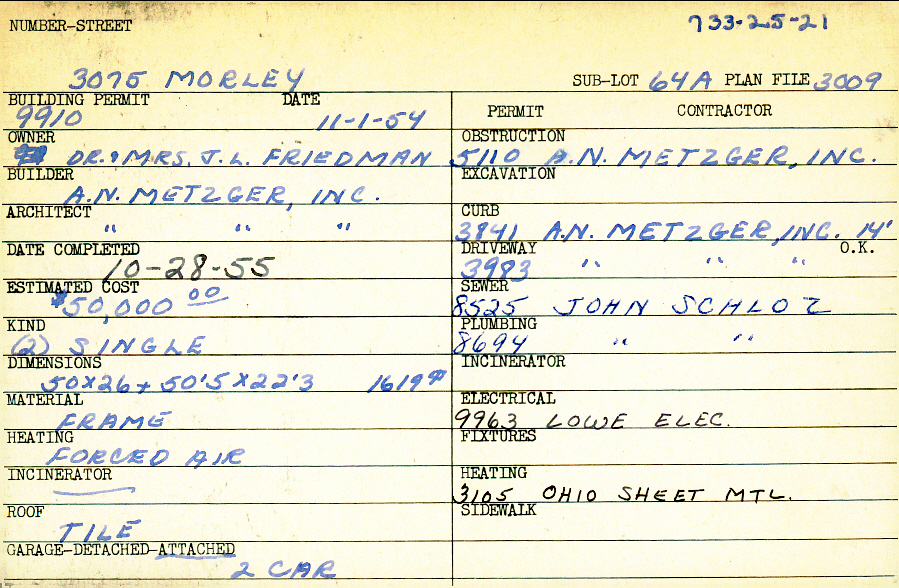 NUMBER-STREET 733-25-21
3075 MORLEY SUB-LOT 64A PLAN FILE 3009
BUILDING PERMIT DATE
9910 11-1-54
PERMIT CONTRACTOR
OWNER
DR. & MRS. J. L. FRIEDMAN
OBSTRUCTION
5110 A.N. METZGER, INC.
BUILDER
A.N. METZGER, INC.
EXCAVATION
ARCHITECT
" " "
CURB
3841 A.N. METZGER, INC. 14'
DATE COMPLETED
10-28-55
DRIVEWAY O.K.
3983 " " "
ESTIMATED COST
$50,000 00
SEWER
8525 JOHN SCHLOZ
KIND
(2) SINGLE
PLUMBING
8694 " "
DIMENSIONS
50x26 + 50'5 x 22'3 1619#
INCINERATOR
MATERIAL
FRAME
ELECTRICAL
9963 LOWE ELEC.
HEATING
FORCED AIR
FIXTURES
INCINERATOR
HEATING
3105 OHIO SHEET MTL.
ROOF
TILE
SIDEWALK
GARAGE-DETACHED-ATTACHED
2 CAR